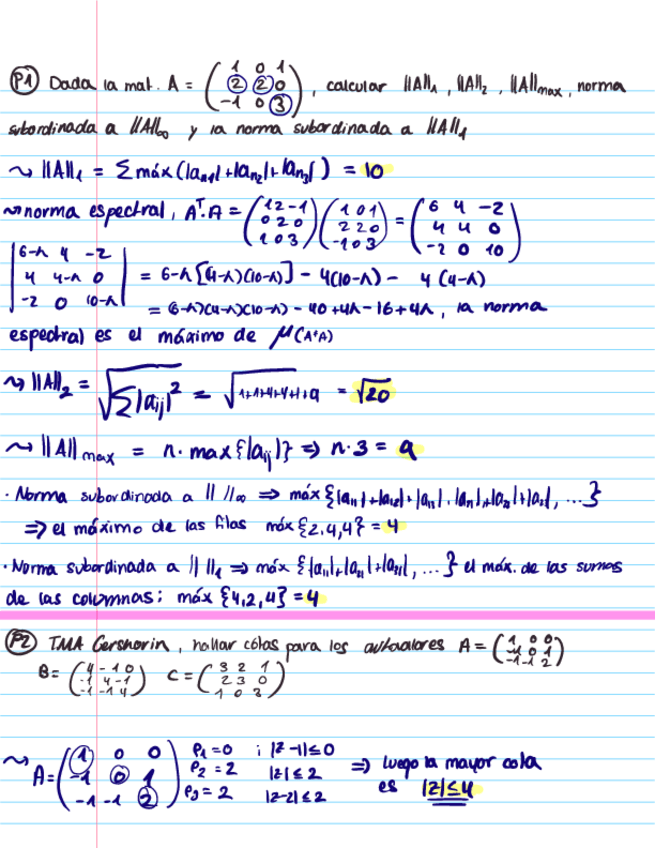 P1 Dada la mat. A = ( 1 0 1 / 2 2 0 / -1 0 3 ), calcular ||A||₁, ||A||₂, ||A||max, norma
subordinada a ||A||∞ y la norma subordinada a ||A||₁
~ ||A||₁ = Σ máx (|an1| + |an2| + |an3|) = 10
~ norma espectral, Aᵀ·A = ( 1 2 -1 / 0 2 0 / 1 0 3 ) ( 1 0 1 / 2 2 0 / -1 0 3 ) = ( 6 4 -2 / 4 4 0 / -2 0 10 )
| 6-λ 4 -2 / 4 4-λ 0 / -2 0 10-λ | = 6-λ [(4-λ)(10-λ)] - 4(10-λ) - 4(4-λ)
= (6-λ)(4-λ)(10-λ) - 40 + 4λ - 16 + 4λ, la norma
espectral es el máximo de μ(A*A)
~ ||A||₂ = √Σ|aij|² = √1+1+4+4+1+9 = √20
~ ||A||max = n · max{|aij|} ⇒ n · 3 = 9
· Norma subordinada a || ||∞ ⇒ máx {|a11| + |a12| + |a13|, |a21| + |a22| + |a23|, ...}
⇒ el máximo de las filas máx {2, 4, 4} = 4
· Norma subordinada a || ||₁ ⇒ máx {|a11| + |a21| + |a31|, ...} el máx. de las sumas
de las columnas; máx {4, 2, 4} = 4
P2 TMA Gershorin, hallar cotas para los autovalores A = ( 1 0 0 / -1 0 1 / -1 -1 2 )
B = ( 4 -1 0 / -1 4 -1 / -1 -1 4 ) C = ( 3 2 1 / 2 3 0 / 1 0 3 )
~ A = ( 1 0 0 / -1 0 1 / -1 -1 2 ) ρ1 = 0 ; |z-1| ≤ 0
ρ2 = 2 |z| ≤ 2 ⇒ luego la mayor cota
ρ3 = 2 |z-2| ≤ 2 es |z| ≤ 4